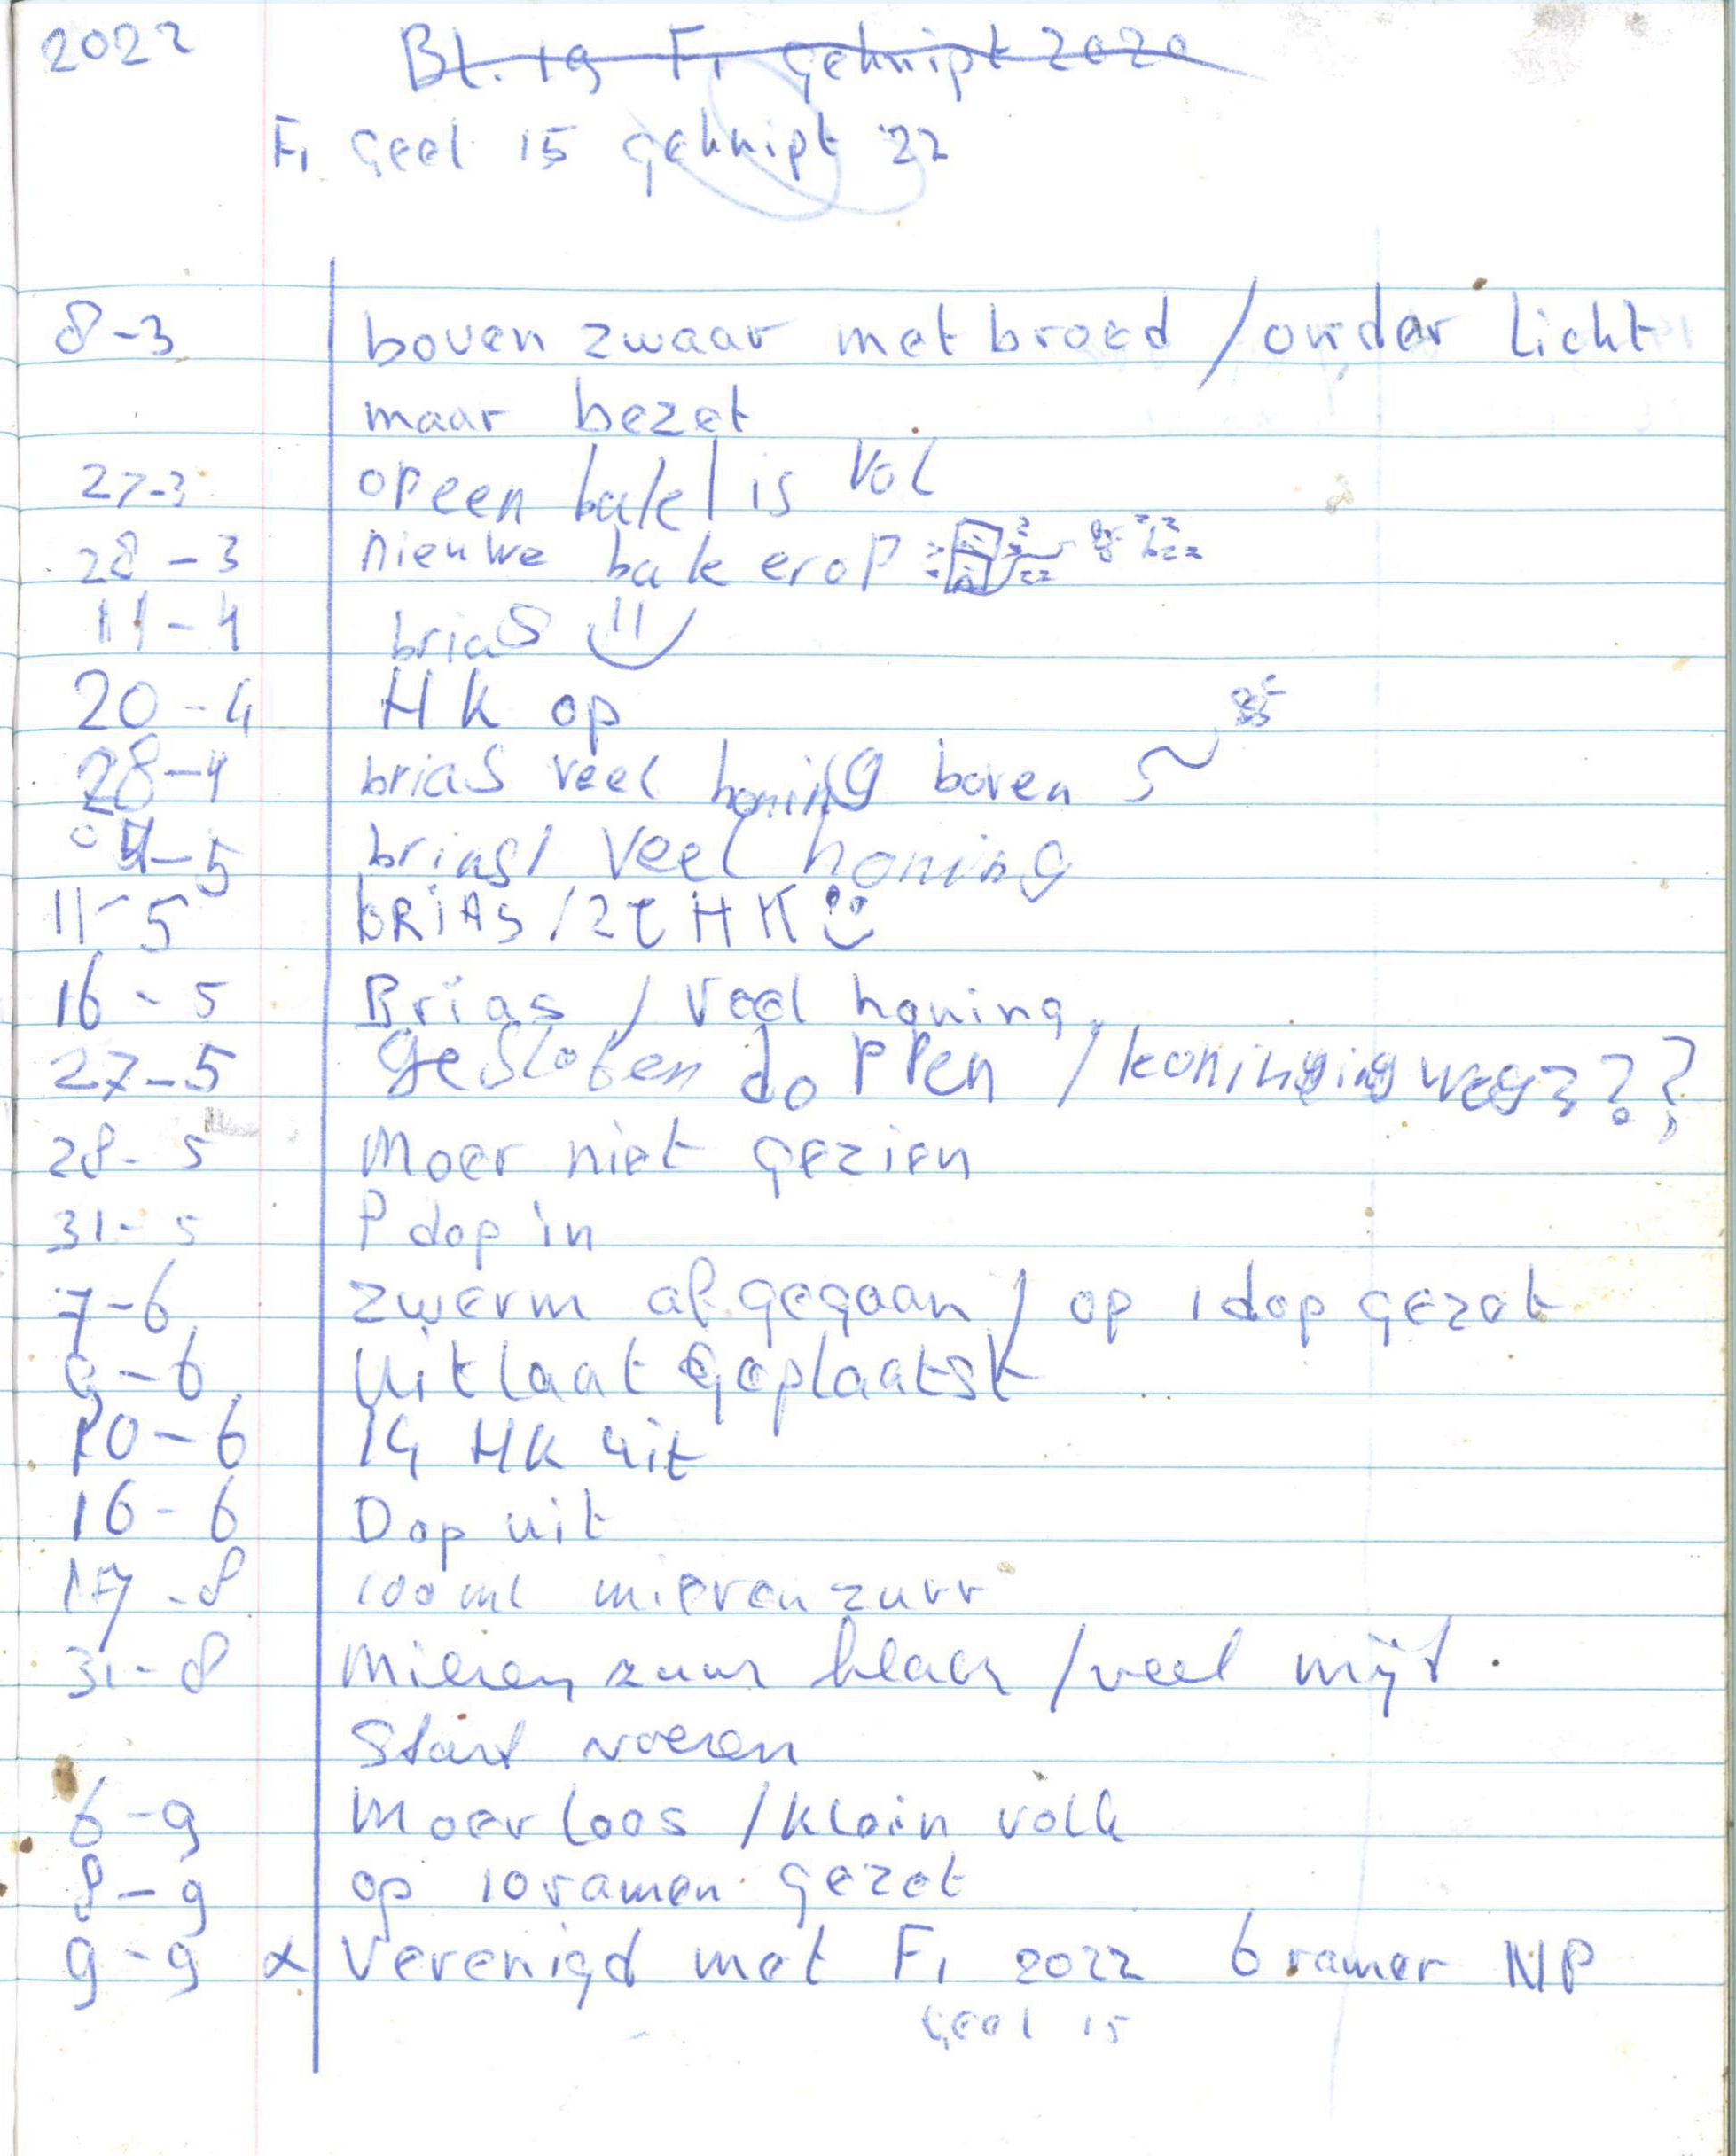 2022 Bl. 19 F1 geknipt 2020
F1 Geel 15 geknipt '22
8-3 boven zwaar met broed / onder licht
maar bezet
27-3 opeen bak is vol
28-3 nieuwe bak erop
11-4 brias
20-4 HK op
28-4 brias veel honing boven
4-5 brias / veel honing
11-5 BRIAS / 2e HK
16-5 Brias / veel honing
27-5 gesloten doppen / koningin weg???
28-5 Moer niet gezien
31-5 P dop in
7-6 zwerm afgegaan / op 1 dop gezet
9-6 Uitlaat geplaatst
10-6 14 HK uit
16-6 Dop uit
17-8 100 ml mierenzuur
31-8 Mierenzuur klaar / veel mijt.
Start voeren
6-9 Moerloos / klein volk
8-9 op 10 ramen gezet
9-9 x Verenigd met F1 2022 6 ramer NP
Geel 15